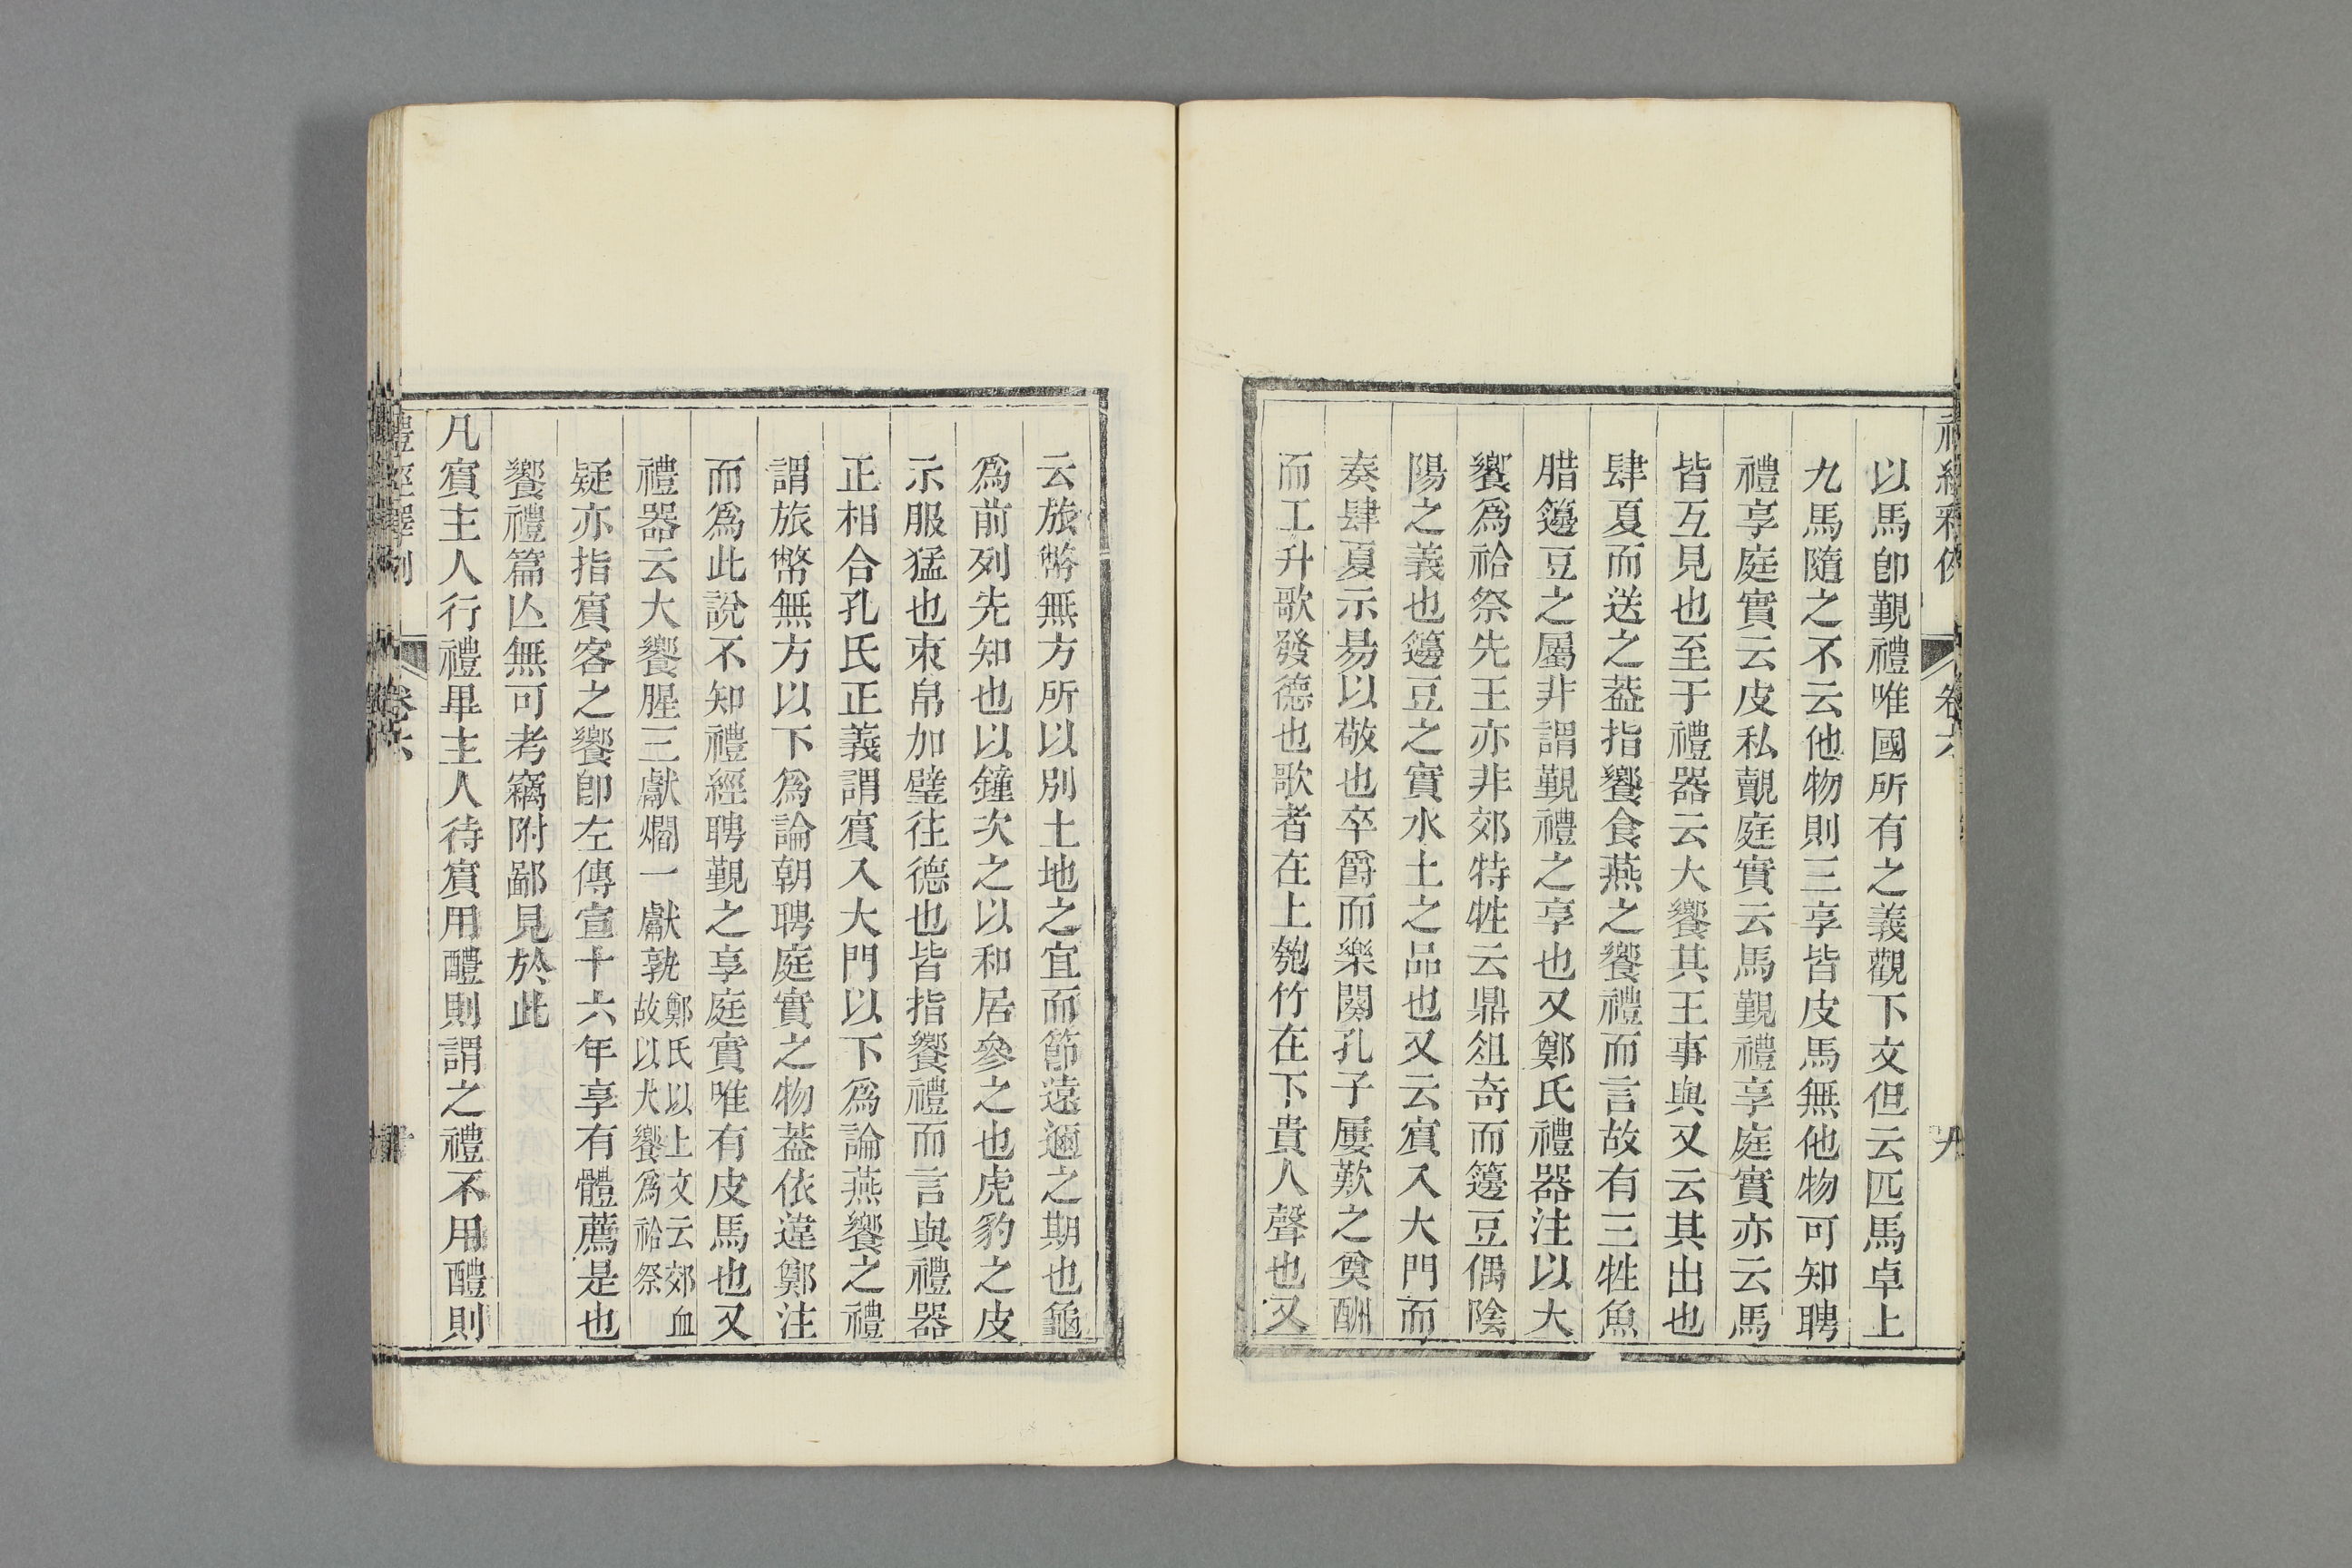 以馬卽覲禮唯國所有之義觀下文但云匹馬卓上
九馬隨之不云他物則三享皆皮馬無他物可知聘
禮享庭實云皮私覿庭實云馬覲禮享庭實亦云馬
皆互見也至于禮器云大饗其王事與又云其出也
肆夏而送之葢指饗食燕之饗禮而言故有三牲魚
腊籩豆之屬非謂覲禮之享也又鄭氏禮器注以大
饗爲祫祭先王亦非郊特牲云鼎俎奇而籩豆偶陰
陽之義也籩豆之實水土之品也又云賓入大門而
奏肆夏示易以敬也卒爵而樂闋孔子屢歎之奠酬
而工升歌發德也歌者在上匏竹在下貴人聲也又
云旅幣無方所以別土地之宜而節遠邇之期也龜
爲前列先知也以鐘次之以和居參之也虎豹之皮
示服猛也束帛加璧往德也皆指饗禮而言與禮器
正相合孔氏正義謂賓入大門以下爲論燕饗之禮
謂旅幣無方以下爲論朝聘庭實之物葢依違鄭注
而爲此說不知禮經聘覲之享庭實唯有皮馬也又
禮器云大饗腥三獻爓一獻孰鄭氏以上文云郊血故以大饗爲祫祭
疑亦指賓客之饗卽左傳宣十六年享有體薦是也
饗禮篇亾無可考竊附鄙見於此
凡賓主人行禮畢主人待賓用醴則謂之禮不用醴則
禮經釋例
卷六